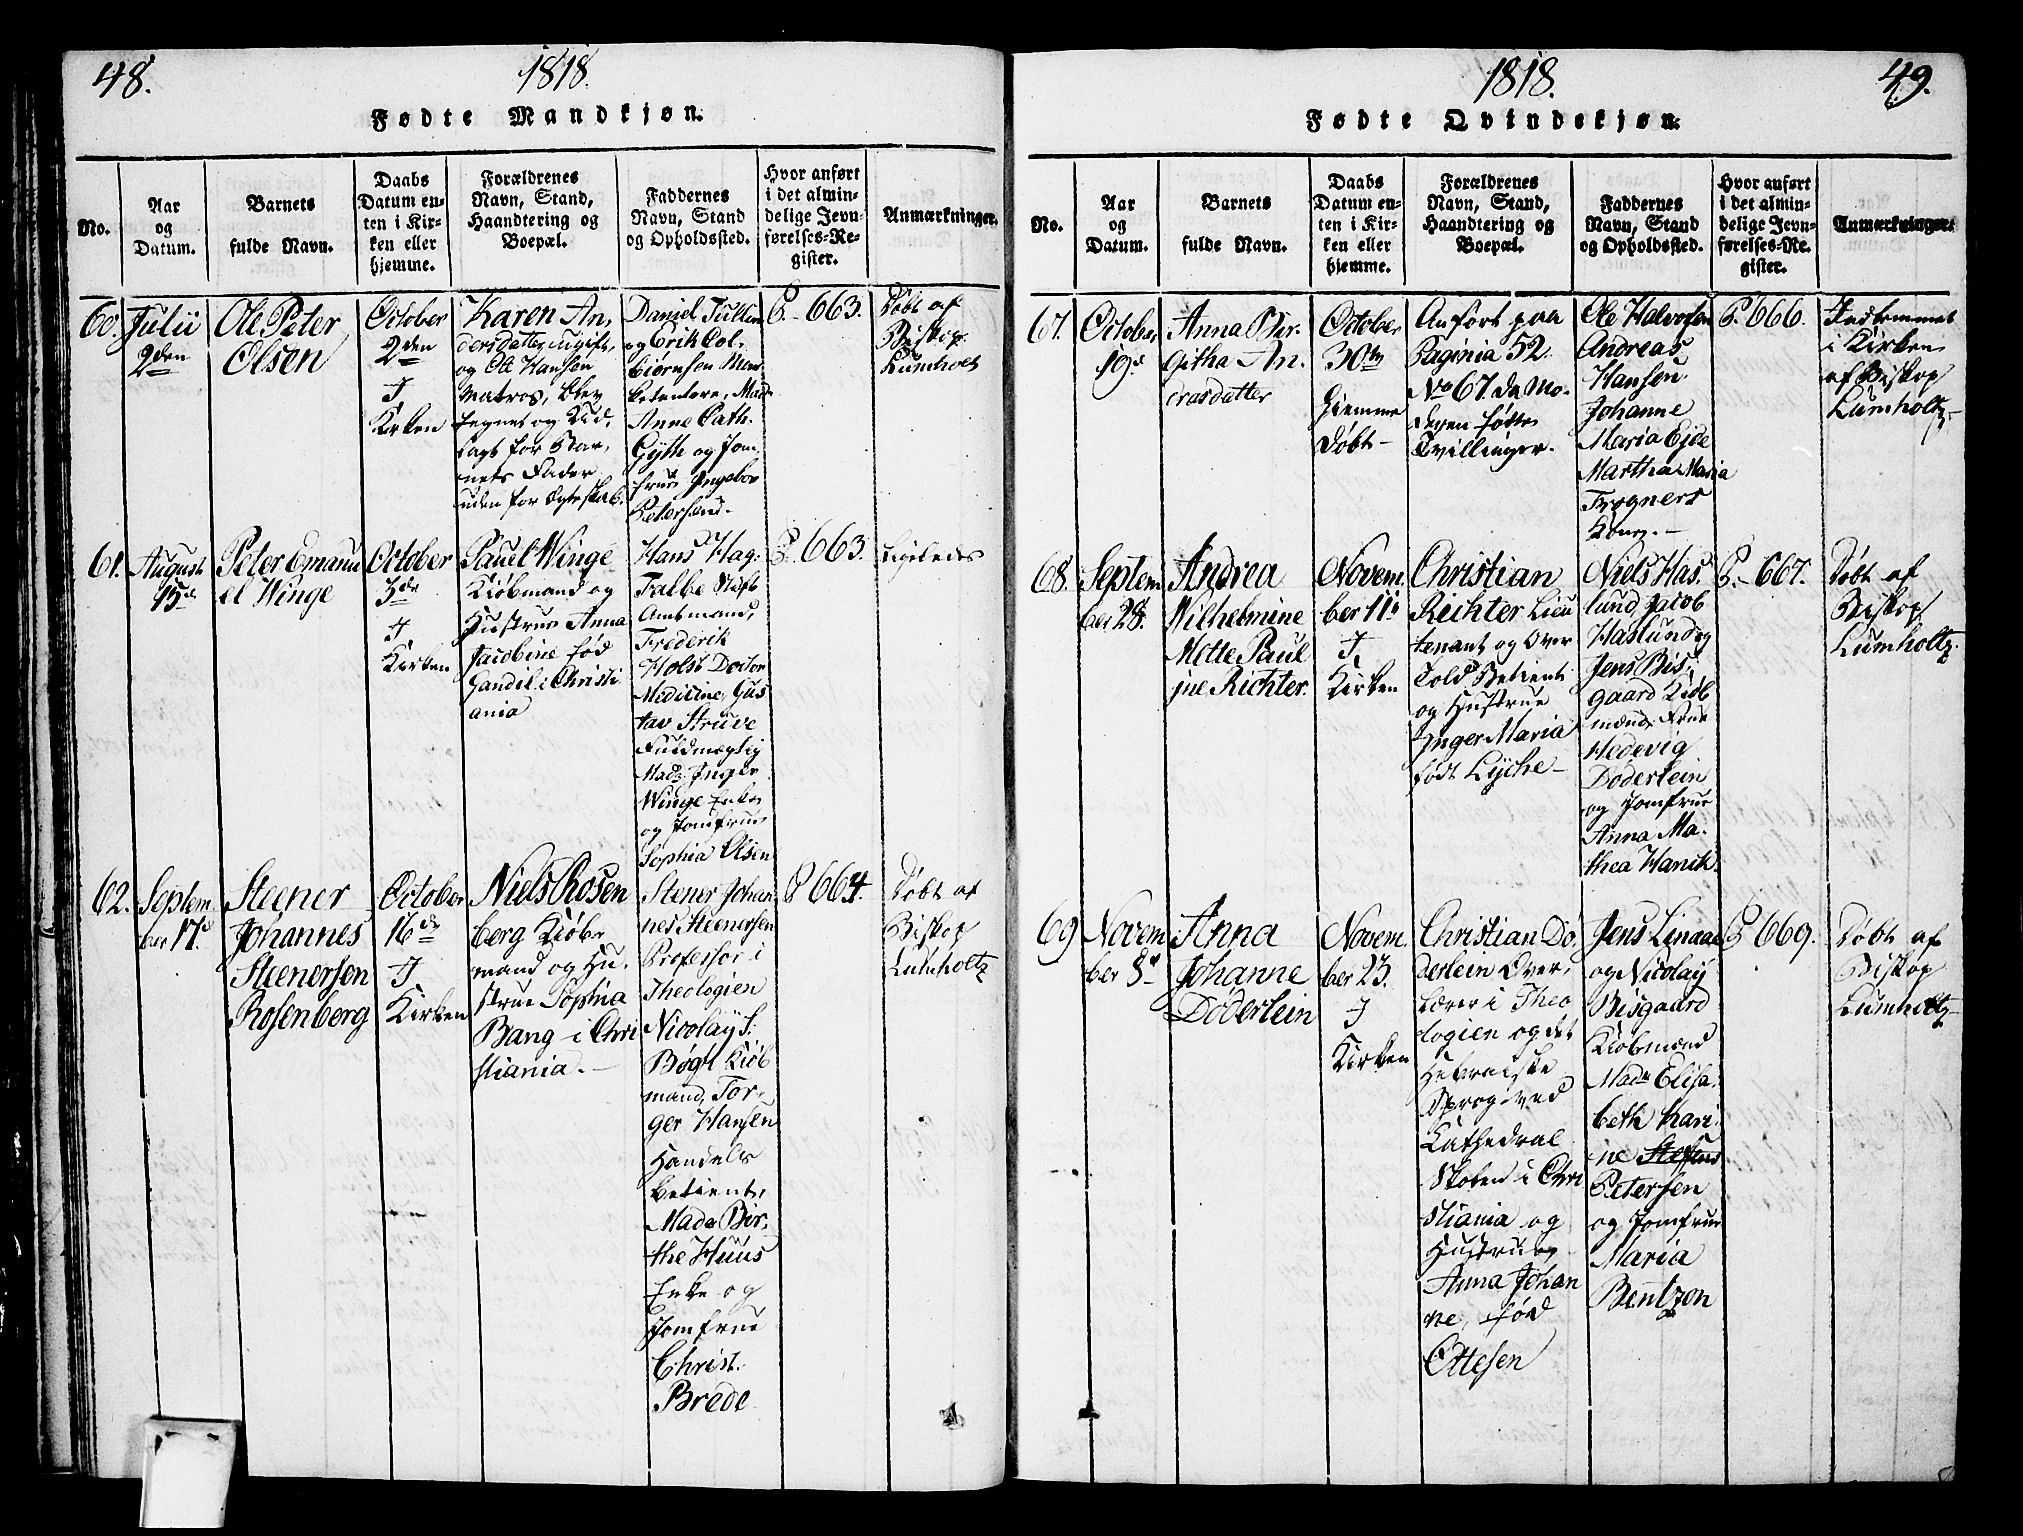 48.
1818.
Fødte Mandkjøn.
No.
Aar
og
Datum.
Barnets
fulde Navn.
Daabs
Datum en-
ten i Kir-
ken eller
hjemme.
Forældrenes
Navn, Stand,
Haandtering og
Boepæl.
Faddernes
Navn, Stand
og Opholdssted.
Hvor anført
i det almin-
delige Jevn-
førelses-Re-
gister.
Anmærkninger.
60.
Julii
2den
Ole Peter
Olsen
October
2den
I
Kirken
Karen An,
dersdatter, ugift,
og Ole Hansen
Matros, blev
tegnet og Ud,
lagt for Bar,
nets Fader
uden for Egteskab.
Daniel
og Erik Col,
biørnsen
betientere, Mad.
Anne Cath.
Gytte og Jom,
frue Ingebor
Petersen.
P. 663.
Døbt af
Biskop
Lumholt
61.
August
15de
Peter Emanu
el Winge
October
3de
I
Kirken
Pauel Winge
Kiøbmand og
Hustrue Anna
Jacobine fød
i Christi
ania
Hans Hag.
Falbe Stift
Amtmand,
Frederik
Holst Doctor
Medicine, Gus
tav Struve
Fuldmægtig
Mad. Inger
Winge Enke
og Jomfrue
Sophia Olsen
P. 663.
Ligeledes
62.
Septem
ber 17.d
Steener
Johannes
Steenersen
Rosenberg
October
16de
I
Kirken
Niels Rosen
berg Kiøb,
mand og Hu,
strue Sophia
Bang i Chri
stiania.
Stener Johan,
nes Steenersen
Professor i
Theologien
Nicolay S.
Bøgl Kiøb
mand, Tor,
ger Hansen
Handels
betient,
Mada Bir,
the Huus
Enke og
Jomfrue
Christ.
Brede
P 664.
Døbt af
Biskop
Lumholtz
1818.
49.
Fødte Qvindekjøn.
No.
Aar
og
Datum.
Barnets
fulde Navn.
Daabs
Datum en-
ten i Kir-
ken eller
hjemme.
Forældrenes
Navn, Stand,
Haandtering og
Boepæl.
Faddernes
Navn, Stand
og Opholdssted.
Hvor anført
i det almin-
delige Jevn-
førelses-Re-
gister.
Anmærkninger.
67.
October
19d
Anna Bir.
githa An.
dreasdatter
October
30te
Hiemme
Døbt -
Anført paa
Pagina 52.
No 67. da Mo-
deren fødte
Tvillinger.
Ole Halvorsen
Andreas
Hansen.
Johanne
Maria Ejde
Martha Maria
Trogners
Kone. -
P. 666.
i Kirken
af Biskop
Lumholtz -
68.
Septem
ber 28.
Andrea
Wilhelmine
Mette Paul
ine Richter.
Novem.
ber 11te
I
Kirken
Christian
Richter Lieu
tenant og Over
Told Betient
og Hustrue
Inger Maria
født Lyche -
Niels Has,
lund, Jacob
Haslund og
Jens Bis,
gaard Kiøb
mænd, Frue
Hedevig
Døderlein
og Jomfrue
Anna Ma.
thea
P. 667.
Døbt af
Biskop
Lumholtz.
69
Novem
ber 8d
Anna
Johanne
Døderlein
Novem.
ber 23.
I
Kirken
Christian Dø,
derlein Over,
Lærer i Theo
logien og det
Hebraiske
Sprog ved
Cathedral
Skolen i Chri
stiania og
Hustrue
Anna Johan
ne, fød
Ottesen
Jens Linaae
og Nicolay
Bisgaard
Kiøbmænd
Made Elisa.
beth Kari.
ne
Petersen
og Jomfrue
Maria
Bentzon
P 669.
Døbt af
Biskop
Lumholtz